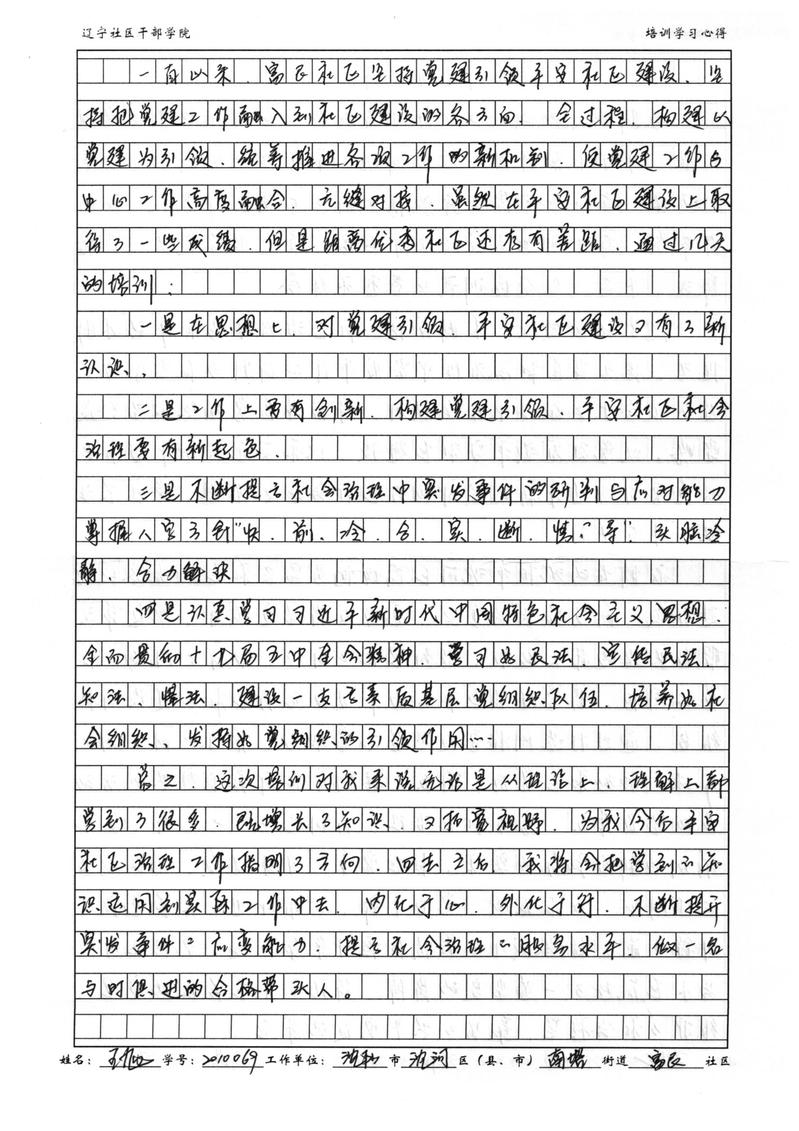 辽宁社区干部学院 培训学习心得
一直以来，富民社区坚持党建引领平安社区建设，坚
持把党建工作融入到社区建设的各方面、全过程，构建以
党建为引领，统筹推进各项工作的新机制，使党建工作与
中心工作高度融合，无缝对接，虽然在平安社区建设上取
得了一些成绩，但是距离优秀社区还存有差距，通过几天
的培训：
一是在思想上，对党建引领、平安社区建设又有了新
认识、
二是工作上要有创新，构建党建引领、平安社区社会
治理要有新起色。
三是不断提高社会治理中突发事件的研判与应对能力
掌握八字方针"快、前、冷、合、实、断、情、导"头脑冷
静、合力解决
四是认真学习习近平新时代中国特色社会主义思想，
全面贯彻十九届五中全会精神，学习好民法，宣传民法，
知法、懂法，建设一支高素质基层党组织队伍，培养好社
会组织、发挥好党组织的引领作用……
总之，这次培训对我来说无论是从理论上，理解上都
学到了很多，既增长了知识，又拓宽视野，为我今后平安
社区治理工作指明了方向，回去之后，我将会把学到的知
识运用到实际工作中去，内化于心，外化于行，不断提升
突发事件的应变能力，提高社会治理的服务水平，做一名
与时俱进的合格带头人。
姓名： 王 学号：2010069 工作单位： 沈阳 市 沈河 区（县、市） 南塔 街道 富民 社区